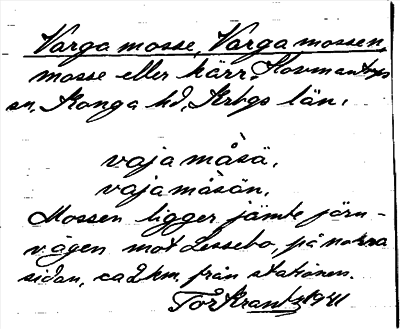 Varga mosse, Varga mossen,
mosse eller kärr. Hovmantorps
sn, Konga hd, Krbgs län.
vajamåsä,
vajamåsän.
Mossen ligger jämte järn-
vägen mot Lessebo, på norra
sidan, ca 2 km. från stationen.
Tor Krantz 1941